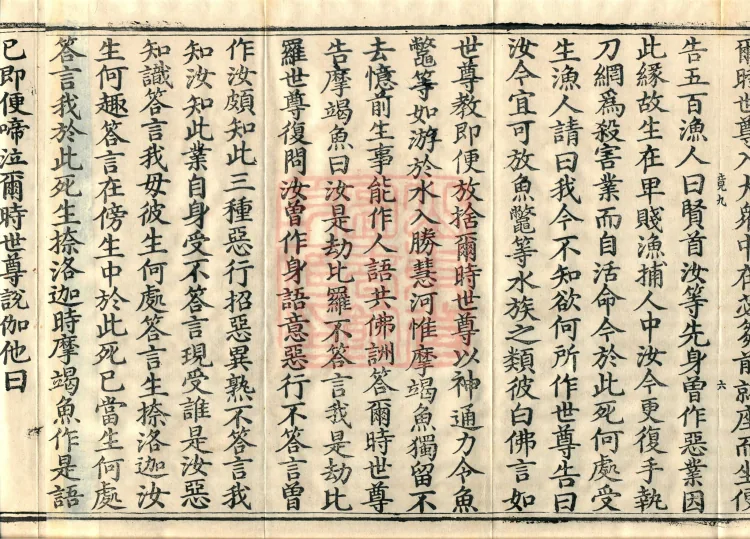 爾時世尊入大衆中在苾芻前就座而坐便
竟九
六
告五百漁人曰賢首汝等先身曾作惡業因
此緣故生在卑賤漁捕人中汝今更復手執
刀網爲殺害業而自活命今於此死何處受
生漁人請曰我今不知欲何所作世尊告曰
汝今宜可放魚鼈等水族之類彼白佛言如
世尊教即便放捨爾時世尊以神通力令魚
鼈等如游於水入勝慧河惟摩竭魚獨留不
去憶前生事能作人語共佛詶答爾時世尊
告摩竭魚曰汝是劫比羅不答言我是劫比
羅世尊復問汝曾作身語意惡行不答言曾
作汝頗知此三種惡行招惡異熟不答言我
知汝知此業自身受不答言現受誰是汝惡
知識答言我母彼生何處答言生捺洛迦汝
生何趣答言在傍生中於此死已當生何處
答言我於此死生捺洛迦時摩竭魚作是語
已即便啼泣爾時世尊說伽他曰